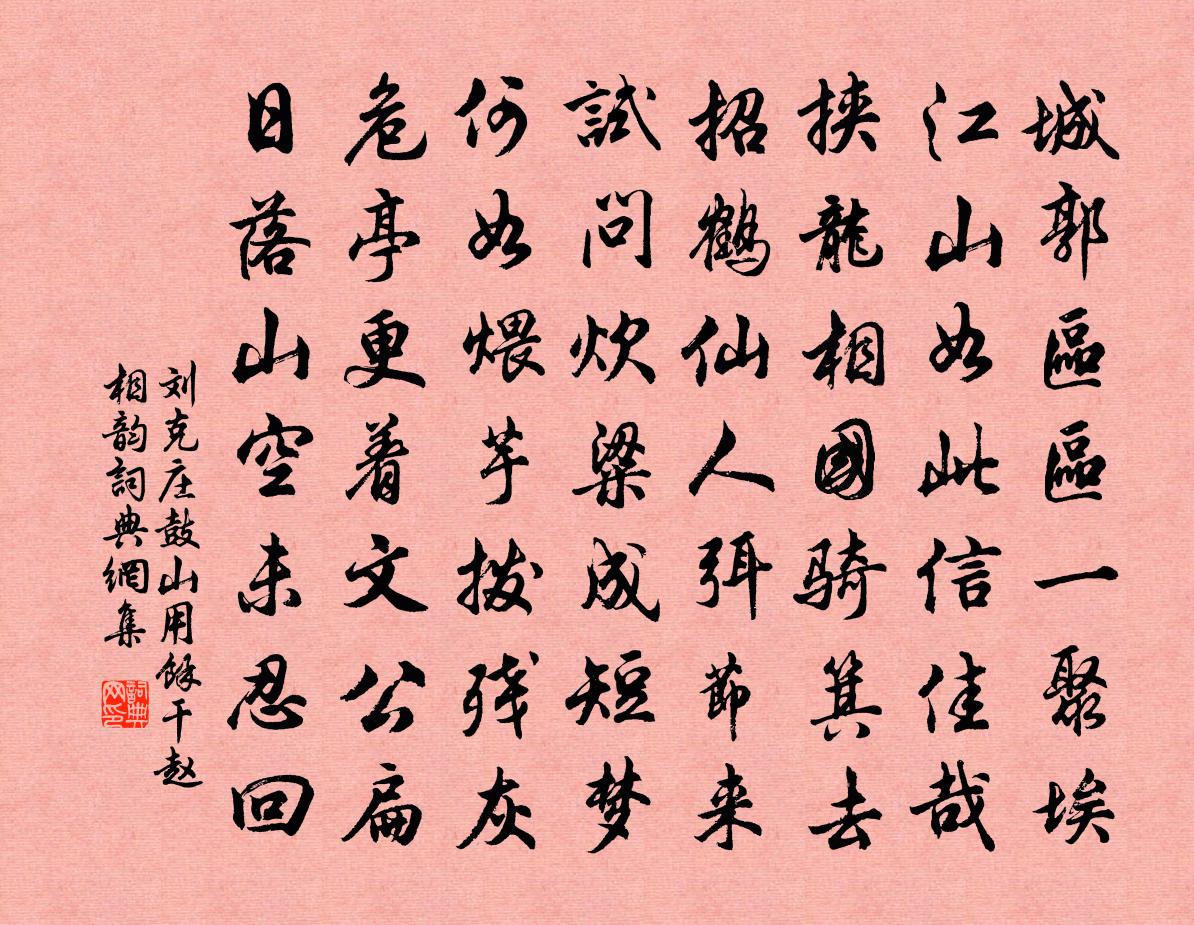 城郭區區一聚埃
江山如此信佳哉
挾龍相國騎箕去
招鶴仙人弭節来
試問炊粱成短梦
何如煨芋撥残灰
危亭更着文公扁
日落山空未忍回
刘克庄鼓山用餘干赵
相韵詞典網集
詞典网印